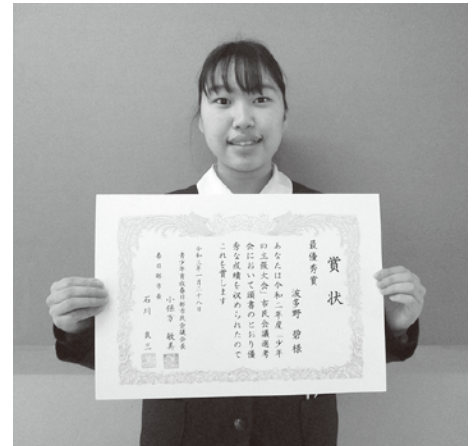 賞状
最優秀賞
波多野 碧 様
あなたは令和二年度「少年
の主張大会」市民会議選考
会において頭書のとおり優
秀な成績を収められたので
これを賞します
令和三年一月二十八日
青少年育成春日部市民会議会長
小保方 敏美
春日部市長
石川 良三